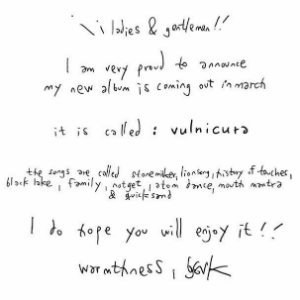 \ i ladies & gentlemen !!
I am very proud to announce
my new album is coming out in march
it is called : vulnicura
the songs are called stonemilker, lionsong, history of touches,
black lake, family, notget, atom dance, mouth mantra
& quicksand
I do hope you will enjoy it !!
warmthness, björk